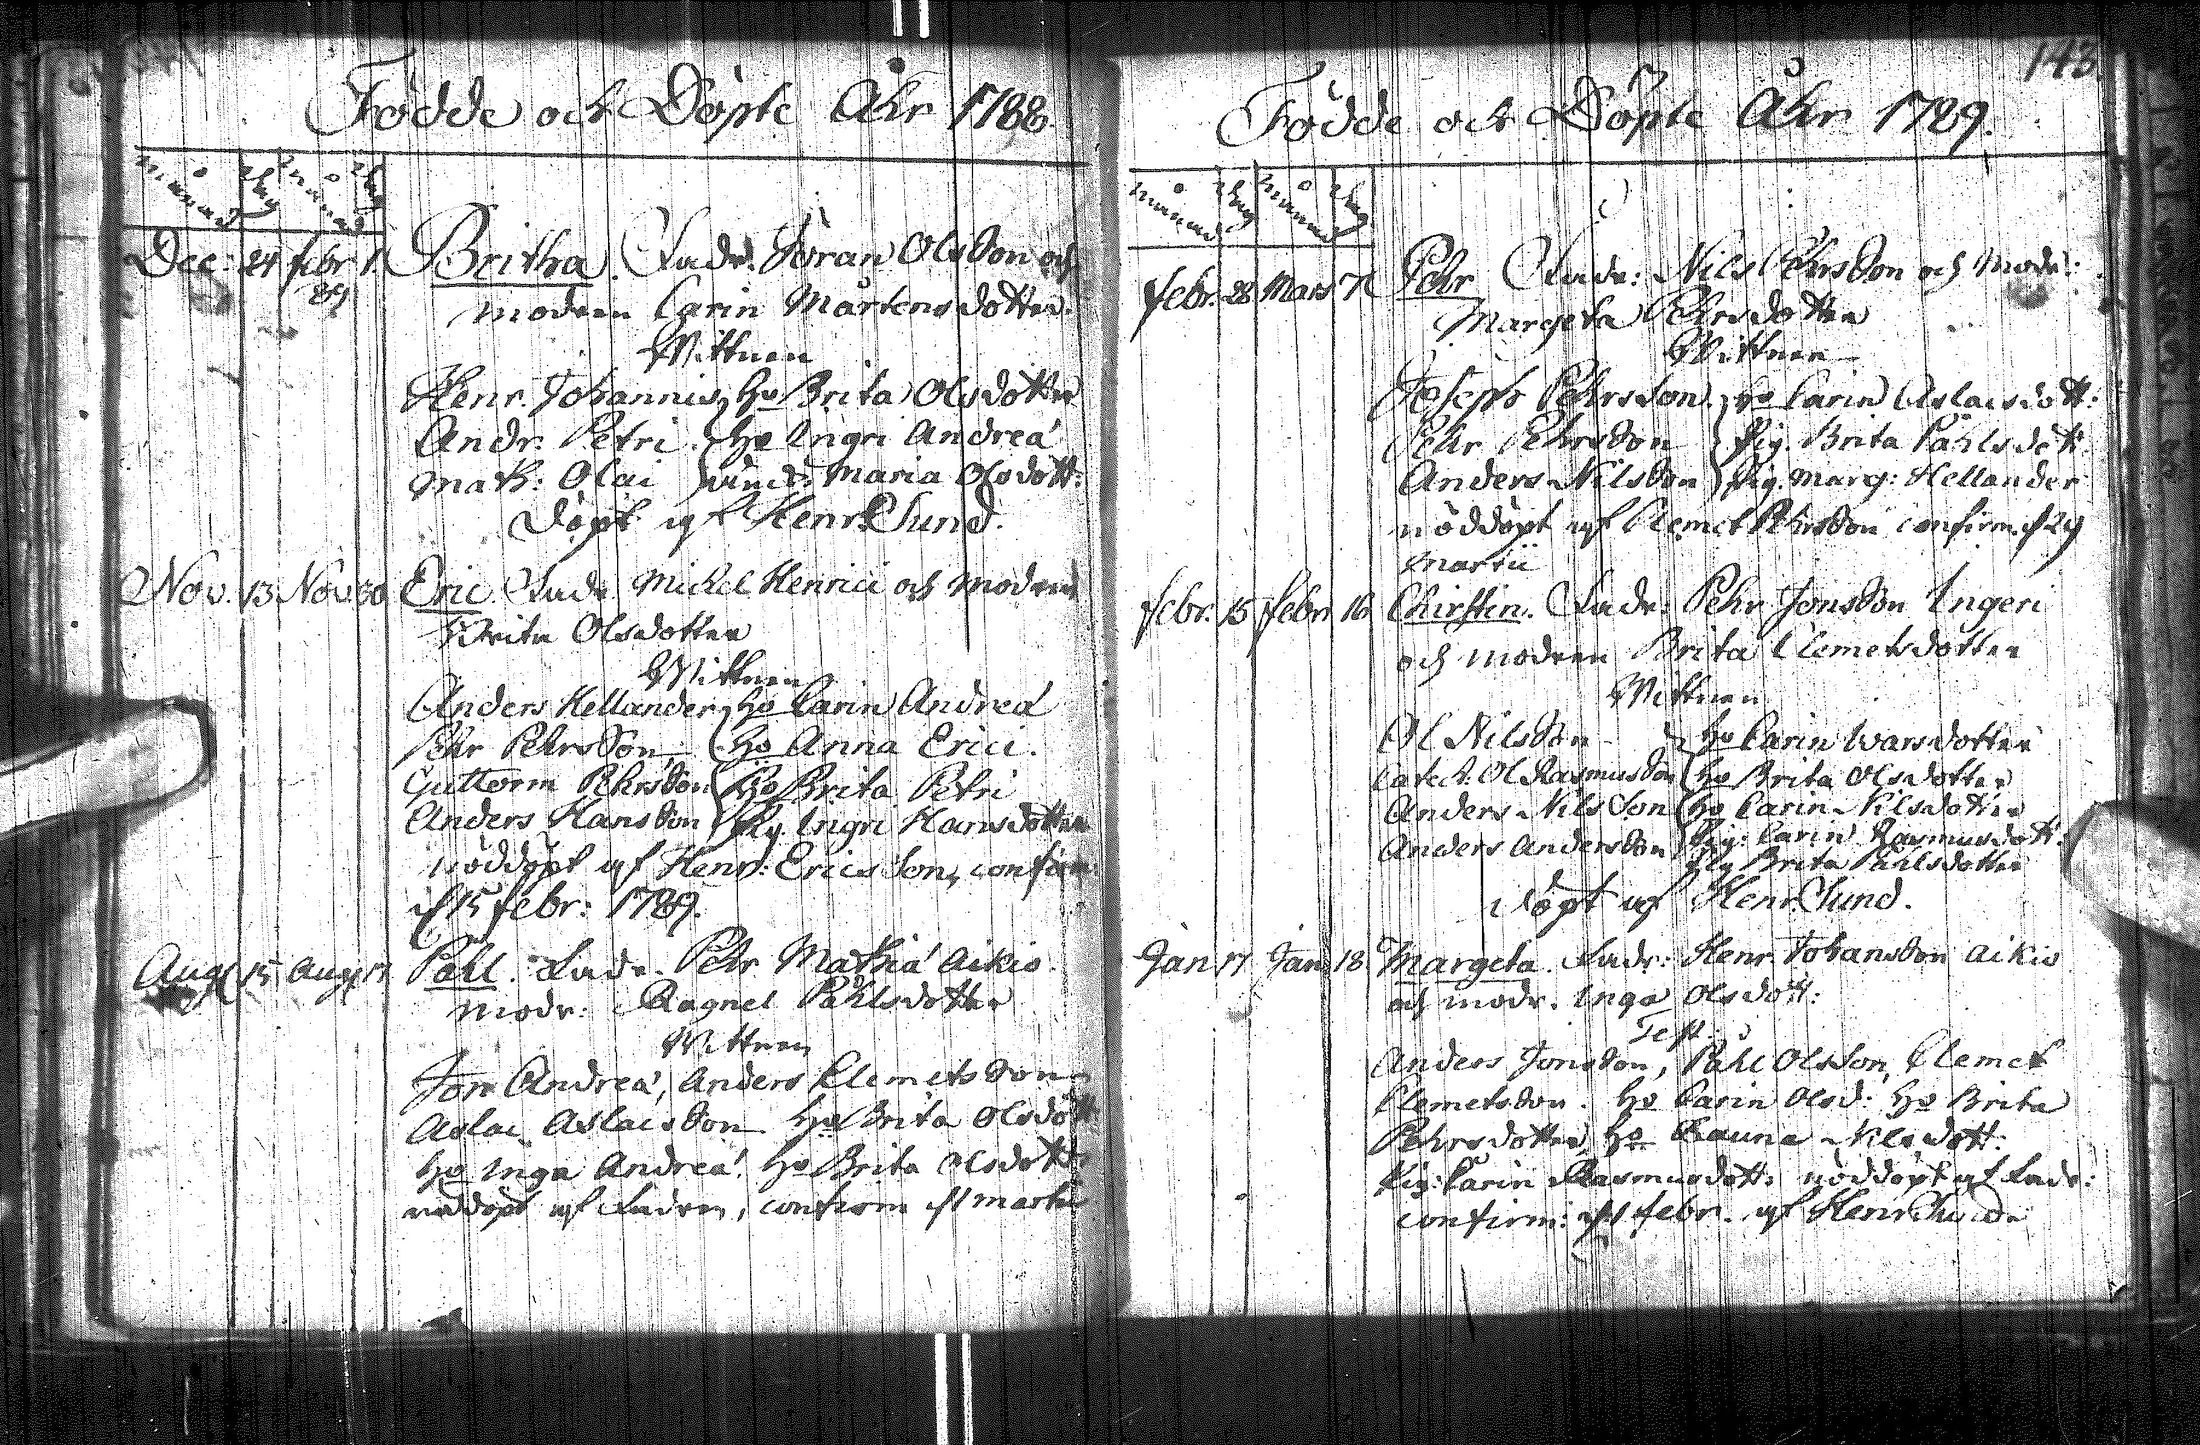 Födde och Döpte Åhr 1788.
månad dag månad dag
Dec: 24 febr 1. Britha. Fadr. Jöran Olsson och
89
modren Carin Mårtensdotter.
Wittnen
Henr. Johannis, Ho Brita Olsdotter
Andr. Petri. Ho Ingri Andreæ
Math: Olai Maria Olsdott:
Döpt af Henr. Lund.
Nov. 13 Nov. 30 Eric. Fadr. Mickel Henrici och Modren
Brita Olsdotter
Wittnen
Anders Hellander, Ho Carin Andreæ
Pehr Pehrsson, Ho Anna Erici.
Guttorm Pehrsson Ho Brita Petri
Anders Hansson Pig. Ingri Hansdotter
nöddöpt af Henr: Ericsson, confirm:
d 15 febr: 1789.
Aug 15 Aug 17 Påhl. Fadr. Pehr Mathiæ Aikio.
modr: Ragnel Påhlsdotter
Wittnen
Jon Andreæ, Anders Clemetsson
Aslac Aslacsson Ho Brita Olsdott
Ho Inga Andreæ. Ho Brita Olsdott
nöddöpt af Fadren, confirm d 1 martii
143.
Födde och Döpte Åhr 1789.
månad dag månad dag
febr. 28 Mars 7 Pehr Fadr: Nils Pehrsson och Modr:
Margeta Pehrsdotter
Wittnen
Joseph Pehrsson, Ho Carin Aslacsdott:
Pehr Pehrsson Pig. Brita Påhlsdott
Anders Nilsson Pig. Marg: Hellander
nöddöpt af Clemet Pehrsson confirm. d 29
martii
febr. 15 febr. 16 Chirstin. Fadr: Pehr Jonsson Ingeri
och modren Brita Clemetsdotter
Wittnen
Ol Nilsson Ho Carin Ivarsdotter
Catech. Ol Rasmusson Ho Brita Olsdotter
Anders Nilsson Ho Carin Nilsdotter
Anders Andersson Pig: Carin Rasmusdott:
Pig Brita Påhlsdotter
Döpt af Henr. Lund.
Jan 17 Jan 18 Margeta. Fadr: Henr. Johansson Aikio
och modr. Inga Olsdott:
Test:
Anders Jonsson, Påhl Olsson, Clemet
Clemetsson. Ho Carin Olsd: Ho Brita
Pehrsdotter, Ho Rauna Nilsdott:
Pig: Carin Rasmusdott: nöddöpt af Fadr:
confirm: d 1 febr. af Henr. Lund